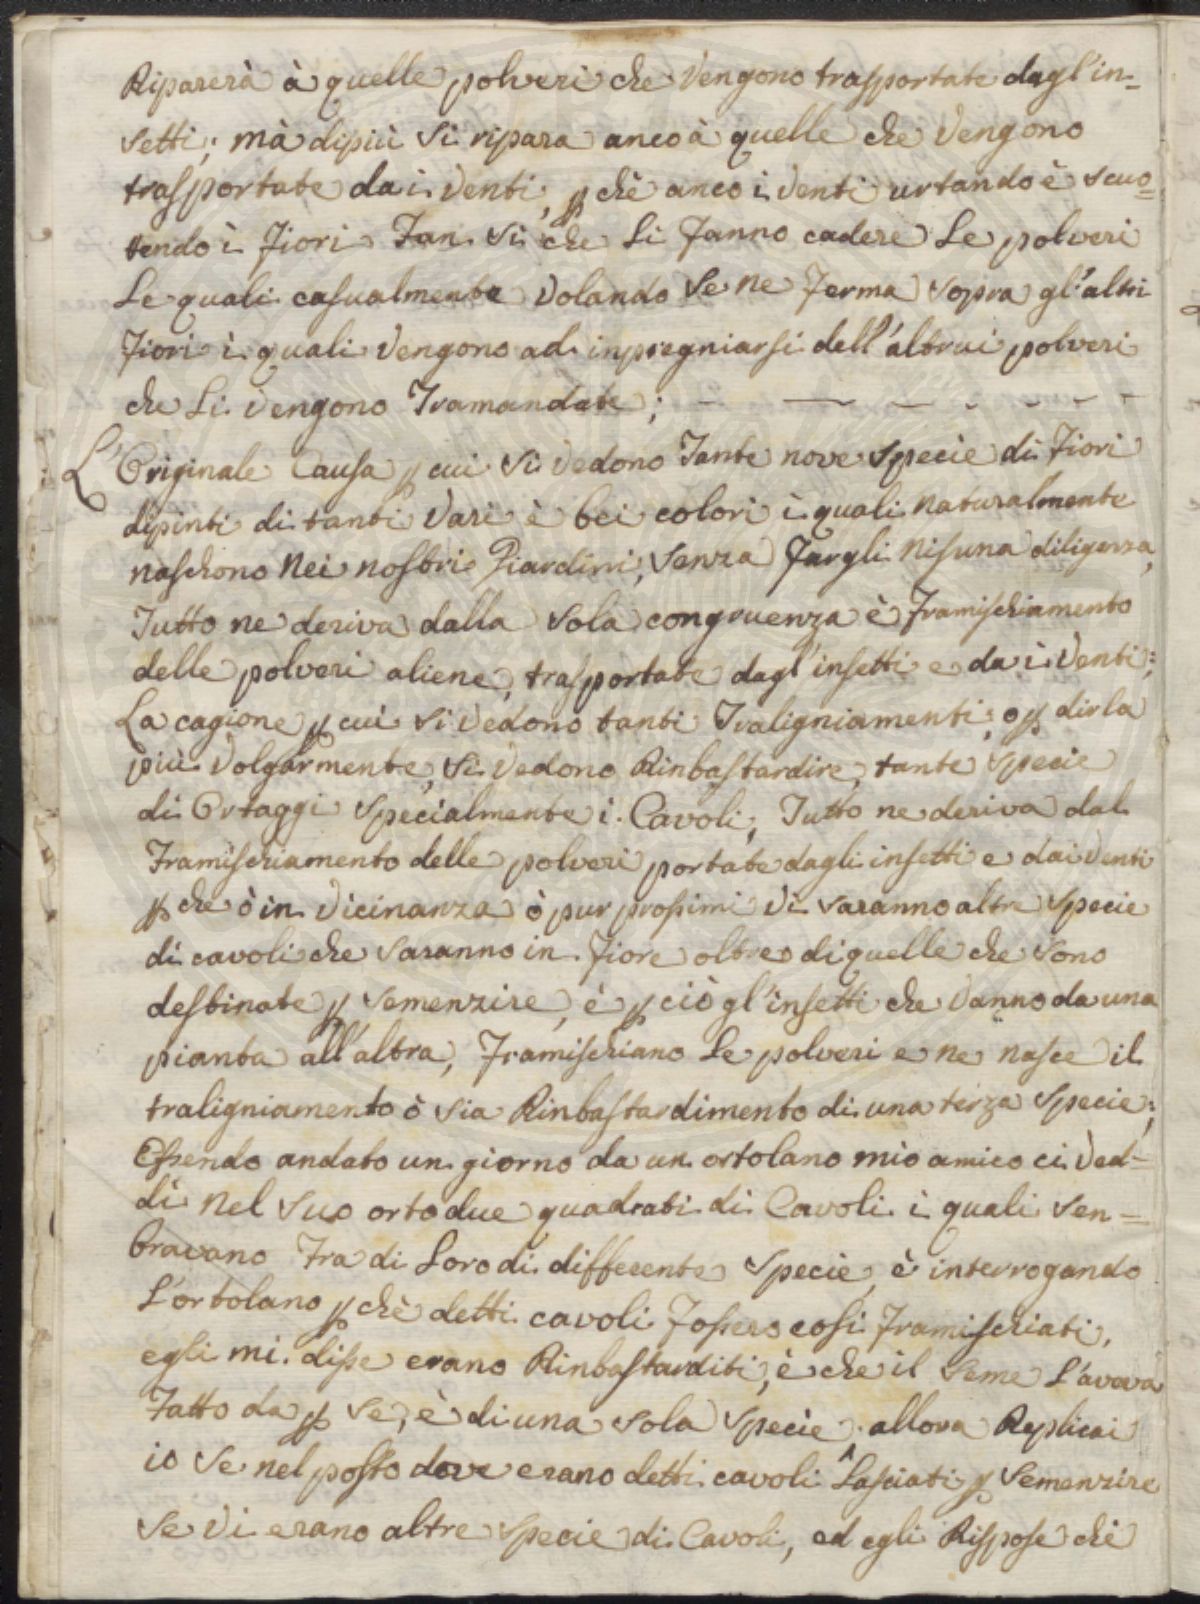 Riparerà à quelle polveri che vengono trasportate dagl'in-
setti; mà dipiù si ripara anco à quelle che vengono
trasportate dai venti, p chè anco i venti urtando è scuo=
tendo i Fiori Fan si che li fanno cadere le polveri
Le quali casualmente volando se ne ferma sopra gl'altri
Fiori i quali vengono ad inpregniarsi dell'altrui polveri
che li vengono Tramandate; - — — - - - - -
L'Originale Causa p cui si vedono Tante nove specie di Fiori
dipinti di tanti vari è bei colori i quali naturalmente
naschono nei nostri Giardini, senza fargli nisuna diligenza,
Tutto ne deriva dalla sola congruenza è Framischiamento
delle polveri aliene, trasportate dagl'insetti e da i venti;
La cagione p cui si vedono tanti Traligniamenti; o p dirla
più volgarmente, si vedono Rinbastardire, tante specie
di Ortaggi specialmente i Cavoli, Tutto ne deriva dal
Framischiamento delle polveri portate dagli insetti e dai venti
p che ò in vicinanza ò pur prossimi vi saranno altre specie
di cavoli che saranno in fiore oltre di quelle che sono
destinate p semenzire, è p ciò gl'insetti che vanno da una
pianta all'altra, Framischiano le polveri e ne nasce il
traligniamento ò sia Rinbastardimento di una terza specie;
Essendo andato un giorno da un ortolano mio amico ci ved=
di nel suo orto due quadrati di Cavoli i quali sen=
bravano Fra di Loro di differente specie, è interrogando
L'ortolano p chè detti cavoli fossero cosi framischiati,
egli mi disse erano Rinbastarditi, è che il seme l'aveva
Fatto da p se, è di una sola specie, allora Replicai
io se nel posto dove erano detti cavoli ^ Lasciati p semenzire
se vi erano altre specie di Cavoli, ed egli Rispose chè